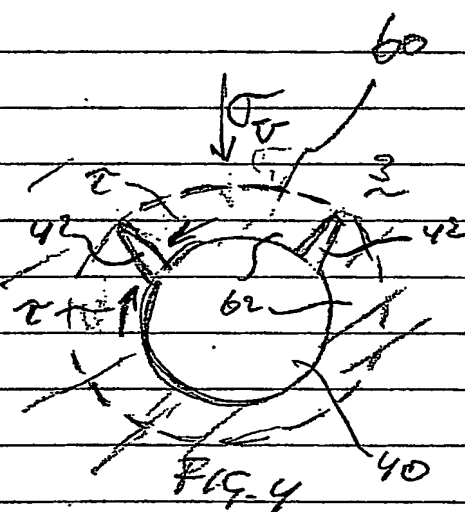 60
σv
τ
3
42
42
τ
62
40
FIG. 4